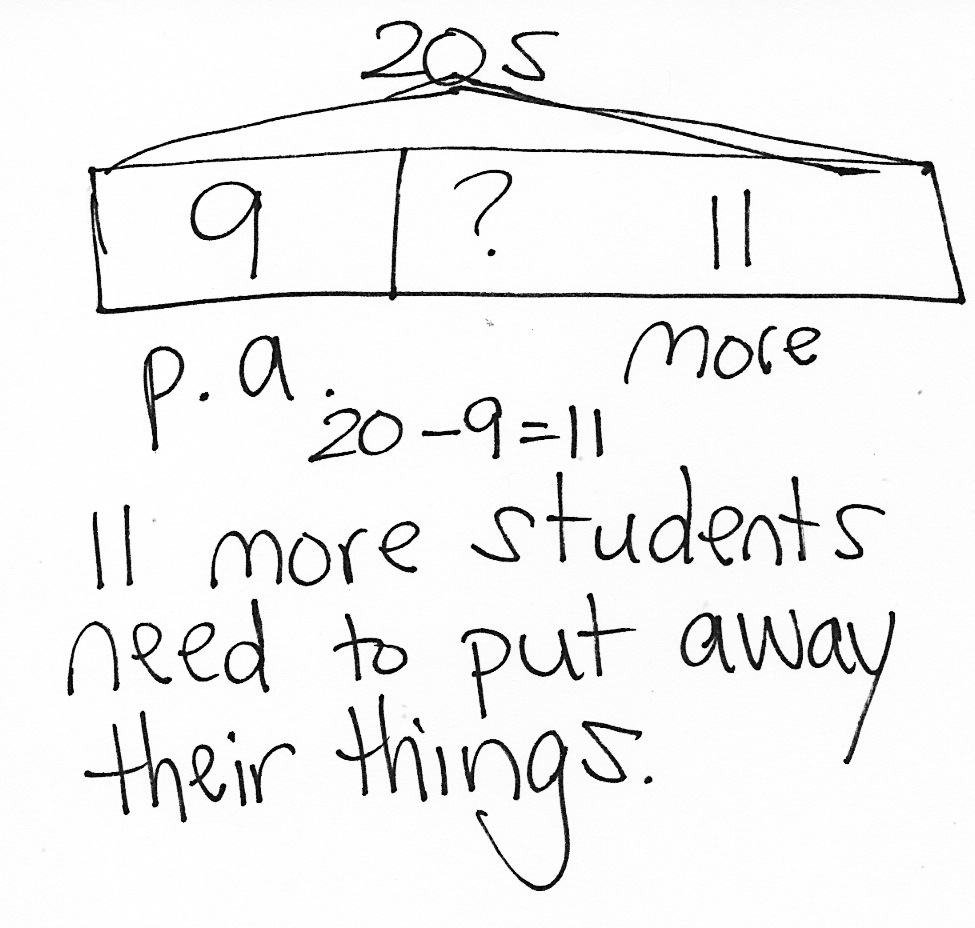 20 S
9 ? 11
p.a. more
20-9=11
11 more students
need to put away
their things.